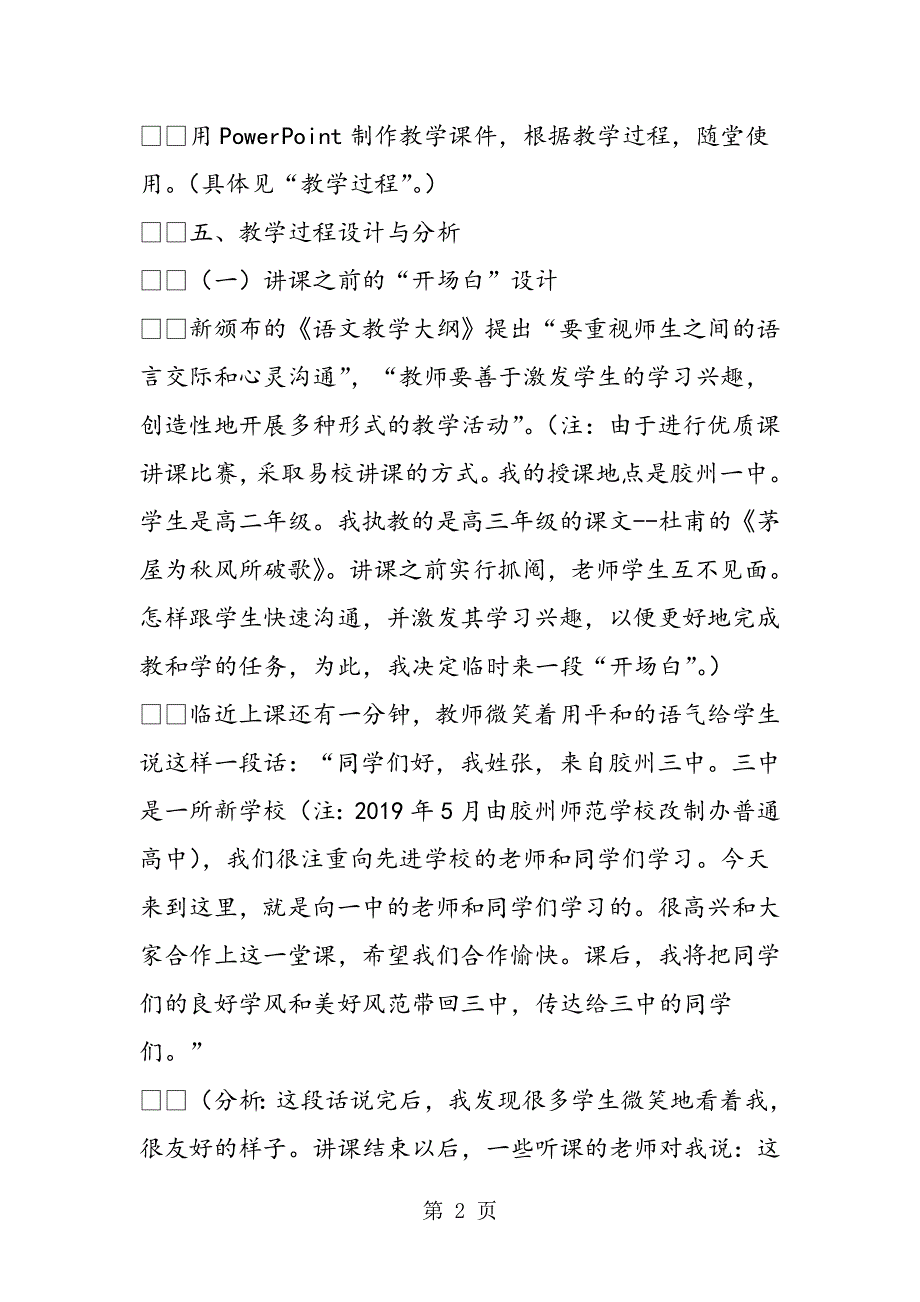 □□用PowerPoint制作教学课件，根据教学过程，随堂使
用。（具体见“教学过程”。）
□□五、教学过程设计与分析
□□（一）讲课之前的“开场白”设计
□□新颁布的《语文教学大纲》提出“要重视师生之间的语
言交际和心灵沟通”，“教师要善于激发学生的学习兴趣，
创造性地开展多种形式的教学活动”。（注：由于进行优质课
讲课比赛，采取易校讲课的方式。我的授课地点是胶州一中。
学生是高二年级。我执教的是高三年级的课文--杜甫的《茅
屋为秋风所破歌》。讲课之前实行抓阄，老师学生互不见面。
怎样跟学生快速沟通，并激发其学习兴趣，以便更好地完成
教和学的任务，为此，我决定临时来一段“开场白”。）
□□临近上课还有一分钟，教师微笑着用平和的语气给学生
说这样一段话：“同学们好，我姓张，来自胶州三中。三中
是一所新学校（注：2019年5月由胶州师范学校改制办普通
高中），我们很注重向先进学校的老师和同学们学习。今天
来到这里，就是向一中的老师和同学们学习的。很高兴和大
家合作上这一堂课，希望我们合作愉快。课后，我将把同学
们的良好学风和美好风范带回三中，传达给三中的同学
们。”
□□（分析：这段话说完后，我发现很多学生微笑地看着我，
很友好的样子。讲课结束以后，一些听课的老师对我说：这
第 2 页